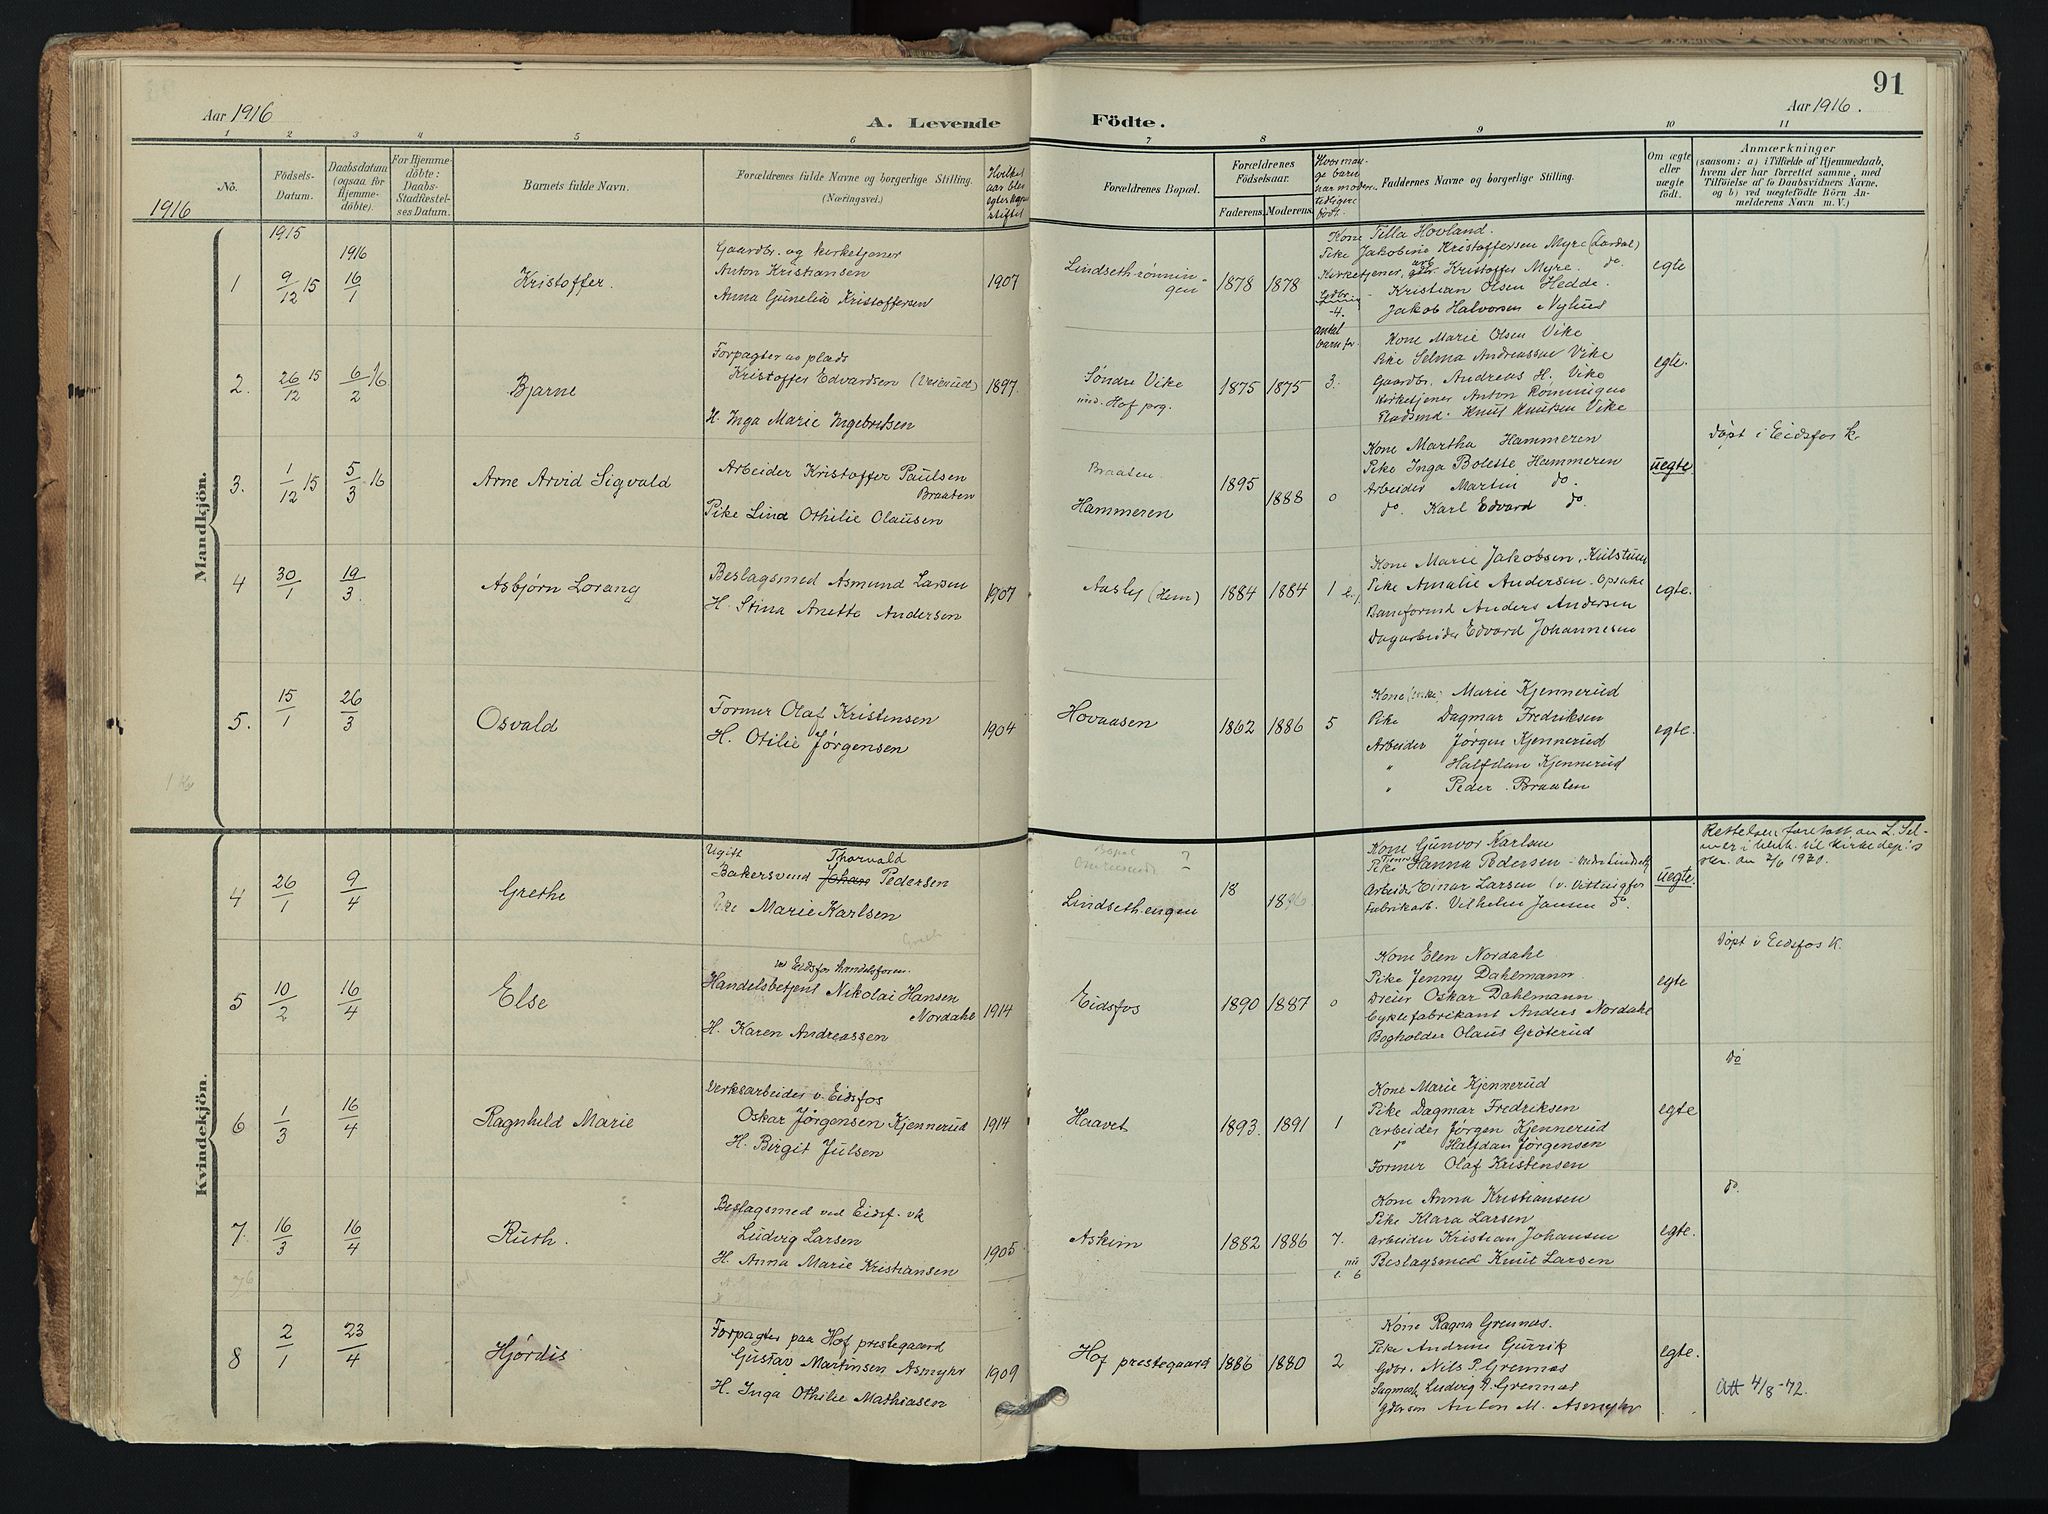 91
Aar 1916
A. Levende
Födte.
Aar 1916.
1 2 3 4 5 6 7 8 9 10 11
No.
Födsels-Datum.
Daabsdatum (ogsaa for Hjemmedöbte).
For Hjemmedöbte: Daabs-Stadfæstelses Datum.
Barnets fulde Navn.
Forældrenes fulde Navne og borgerlige Stilling.
(Næringsvei.)
Hvilket aar blev egteskapet stiftet
Forældrenes Bopæl.
Forældrenes Födselsaar.
Faderens.
Moderens.
Hvormange barn har moderen tidligere födt.
Faddernes Navne og borgerlige Stilling.
Om ægte eller uægte födt.
Anmærkninger
(saasom: a) i Tilfælde af Hjemmedaab, hvem der har forrettet samme, med Tilföielse af to Daabsvidners Navne, og b) ved uægtefödte Börn Anmelderens Navn m. V.)
1916
Mandkjön.
1915
1916
1
9/12 15
16/1
Kristoffer.
Gaardbr. og kirketjener
Anton Kristiansen
Anna Gunelia Kristoffersen
1907
Lindsethrønningen
1878
1878
4.
antal barn før
Kone Tilla Hovland.
Pike Jakobine Kristoffersen Myre (Lardal)
Kirketjener, Kristoffer Myre. do.
Kristian Olsen Hedde.
Jakob Halvorsen Nylund
egte
2.
26/12 15
6/2 16
Bjarne
Forpagter av plads
Kristoffer Edvardsen
H. Inga Marie Ingebretsen
1897.
Søndre Vike
Hof prg.
1875
1875
3.
Kone Marie Olsen Vike
Pike Selma Andreassen Vike
Gaardbr. Andreas H. Vike
Kirketjener Anton Rønningen
Pladsmd. Knut Knutsen Vike
egte.
3.
1/12 15
5/3 16
Arne Arvid Sigvald
Arbeider Kristoffer Paulsen
Braaten
Pike Lind Othilie Olausen
Braaten.
Hammeren
1895
1888
0
Kone Martha Hammeren
Pike Inga Bolette Hammeren
Arbeider Martin do.
do. Karl Edvard do.
uegte
Døpt i Eidsfos k.
4
30/1
19/3.
Asbjørn Lorang
Beslagsmed Asmund Larsen
H. Stina Anette Andersen
1907
Aasly (Hem)
1884
1884
1
Kone Marie Jakobsen,
Pike Amalie Andersen.
Baneformd Anders Andersen
Dagarbeider Edvard Johannesen
egte.
5.
15/1
26/3
Osvald
Former Olaf Kristensen
H. Otilie Jørgensen
1904
Hovaasen
1862
1886
5
Kone Marie Kjennerud
Pike Dagmar Fredriksen
Arbeider Jørgen Kjennerud
" Halfdan Kjennerud
" Peder Braaten
egte.
Kvindekjön.
4
26/1
9/4
Grethe
Ugift Thorvald
Bakersvend Johan Pedersen
Pike Marie Karlsen
Bopæl ?
Lindsethengen
18
1896
Kone Gunvor Karlsen
Pike Hanna Pedersen
Arbeider Einar Larsen (v. Vittingfos
Fabrikarb. Vilhelm Jansen do.
uegte.
5
10/2
16/4
Else
v Eidsfos handelsforen.
Handelsbetjent Nikolai Hansen
Nordahl
H. Karen Andreassen
1914
Eidsfos
1890
1887
0
Kone Elen Nordahl
Pike Jenny Dahlmann
Dreier Oskar Dahlmann
Cyklefabrikant Anders Nordahl
Bogholder Olaus Grøterud
egte
Døpt i Eidsfos k.
6
1/3
16/4
Ragnhild Marie
Verksarbeider v. Eidsfos
Oskar Jørgensen Kjennerud
H. Birgit Julsen
1914
Haavet
1893.
1891
1
Kone Marie Kjennerud
Pike Dagmar Fredriksen
Arbeider Jørgen Kjennerud
" Halfdan Jørgensen
Former Olaf Kristensen
egte
Do
7.
16/3
16/4
Ruth.
Beslagsmed ved Eidsf. vk
Ludvig Larsen
H. Anna Marie Kristiansen
1905.
Askim
1882
1886
7.
6
Kone Anna Kristiansen
Pike Klara Larsen
Arbeider Kristian Johansen
Beslagsmed Knut Larsen
egte.
Do.
8
2/1
23/4
Hjørdis
Forpagter paa Hof prestegaard
Gustav Martinsen Asmyhr
H. Inga Othilie Mathiasen
1909
Hof prestegaard
1886
1880
2
Kone Ragna Grennæs.
Pike Andrine Gurrik
Gdbr. Nils P. Grennæs
Sagmest. Ludvig A. Grennæs
Anton M. Asmyhr
egte.
Att 4/8-72.